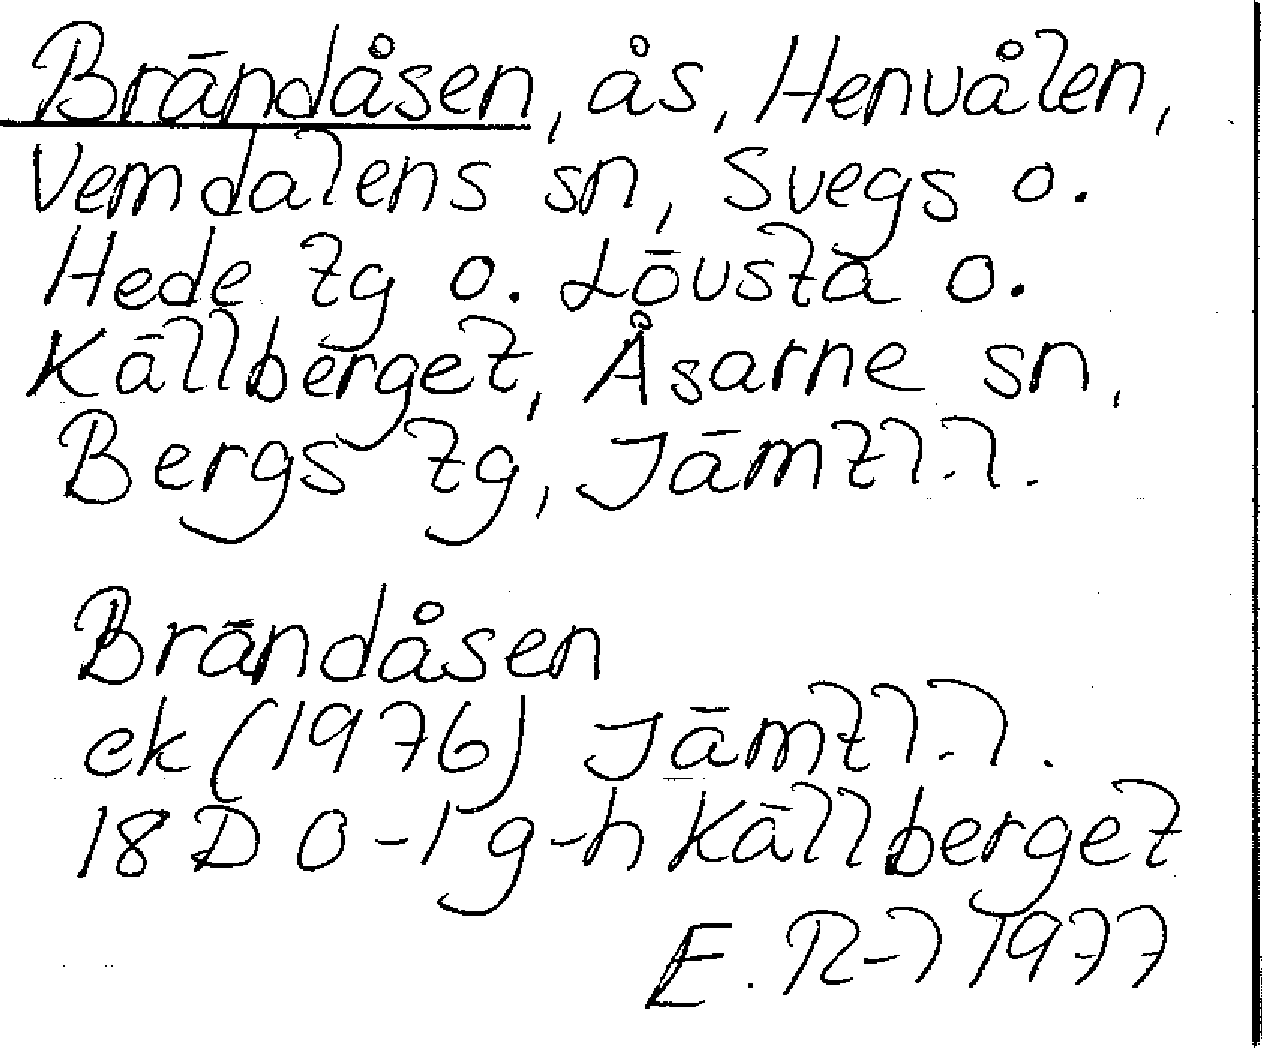 Brändåsen, ås, Henvålen,
Vemdalens sn, Svegs o.
Hede tg o. Lövsta o.
Källberget, Åsarne sn,
Bergs tg, Jämtl.l.
Brändåsen
ek (1976) Jämtl.l.
18D 0-1 g-h Källberget
E. R-l 1977